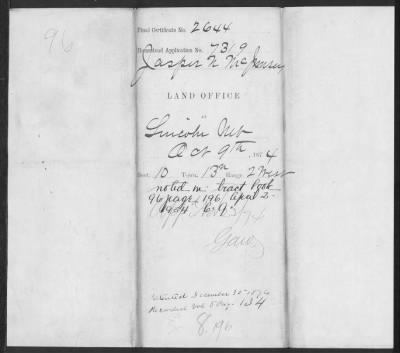 96
Final Certificate No. 2644
Homestead Application No. 7319
Jasper N
LAND OFFICE
Lincoln Neb
Oct 9th, 1874
Sect. 10 Town. 13n Range 2 West
noted in tract book
96 page 196
Patented December 30 1874
Recorded Vol 5 Page 134
8.196